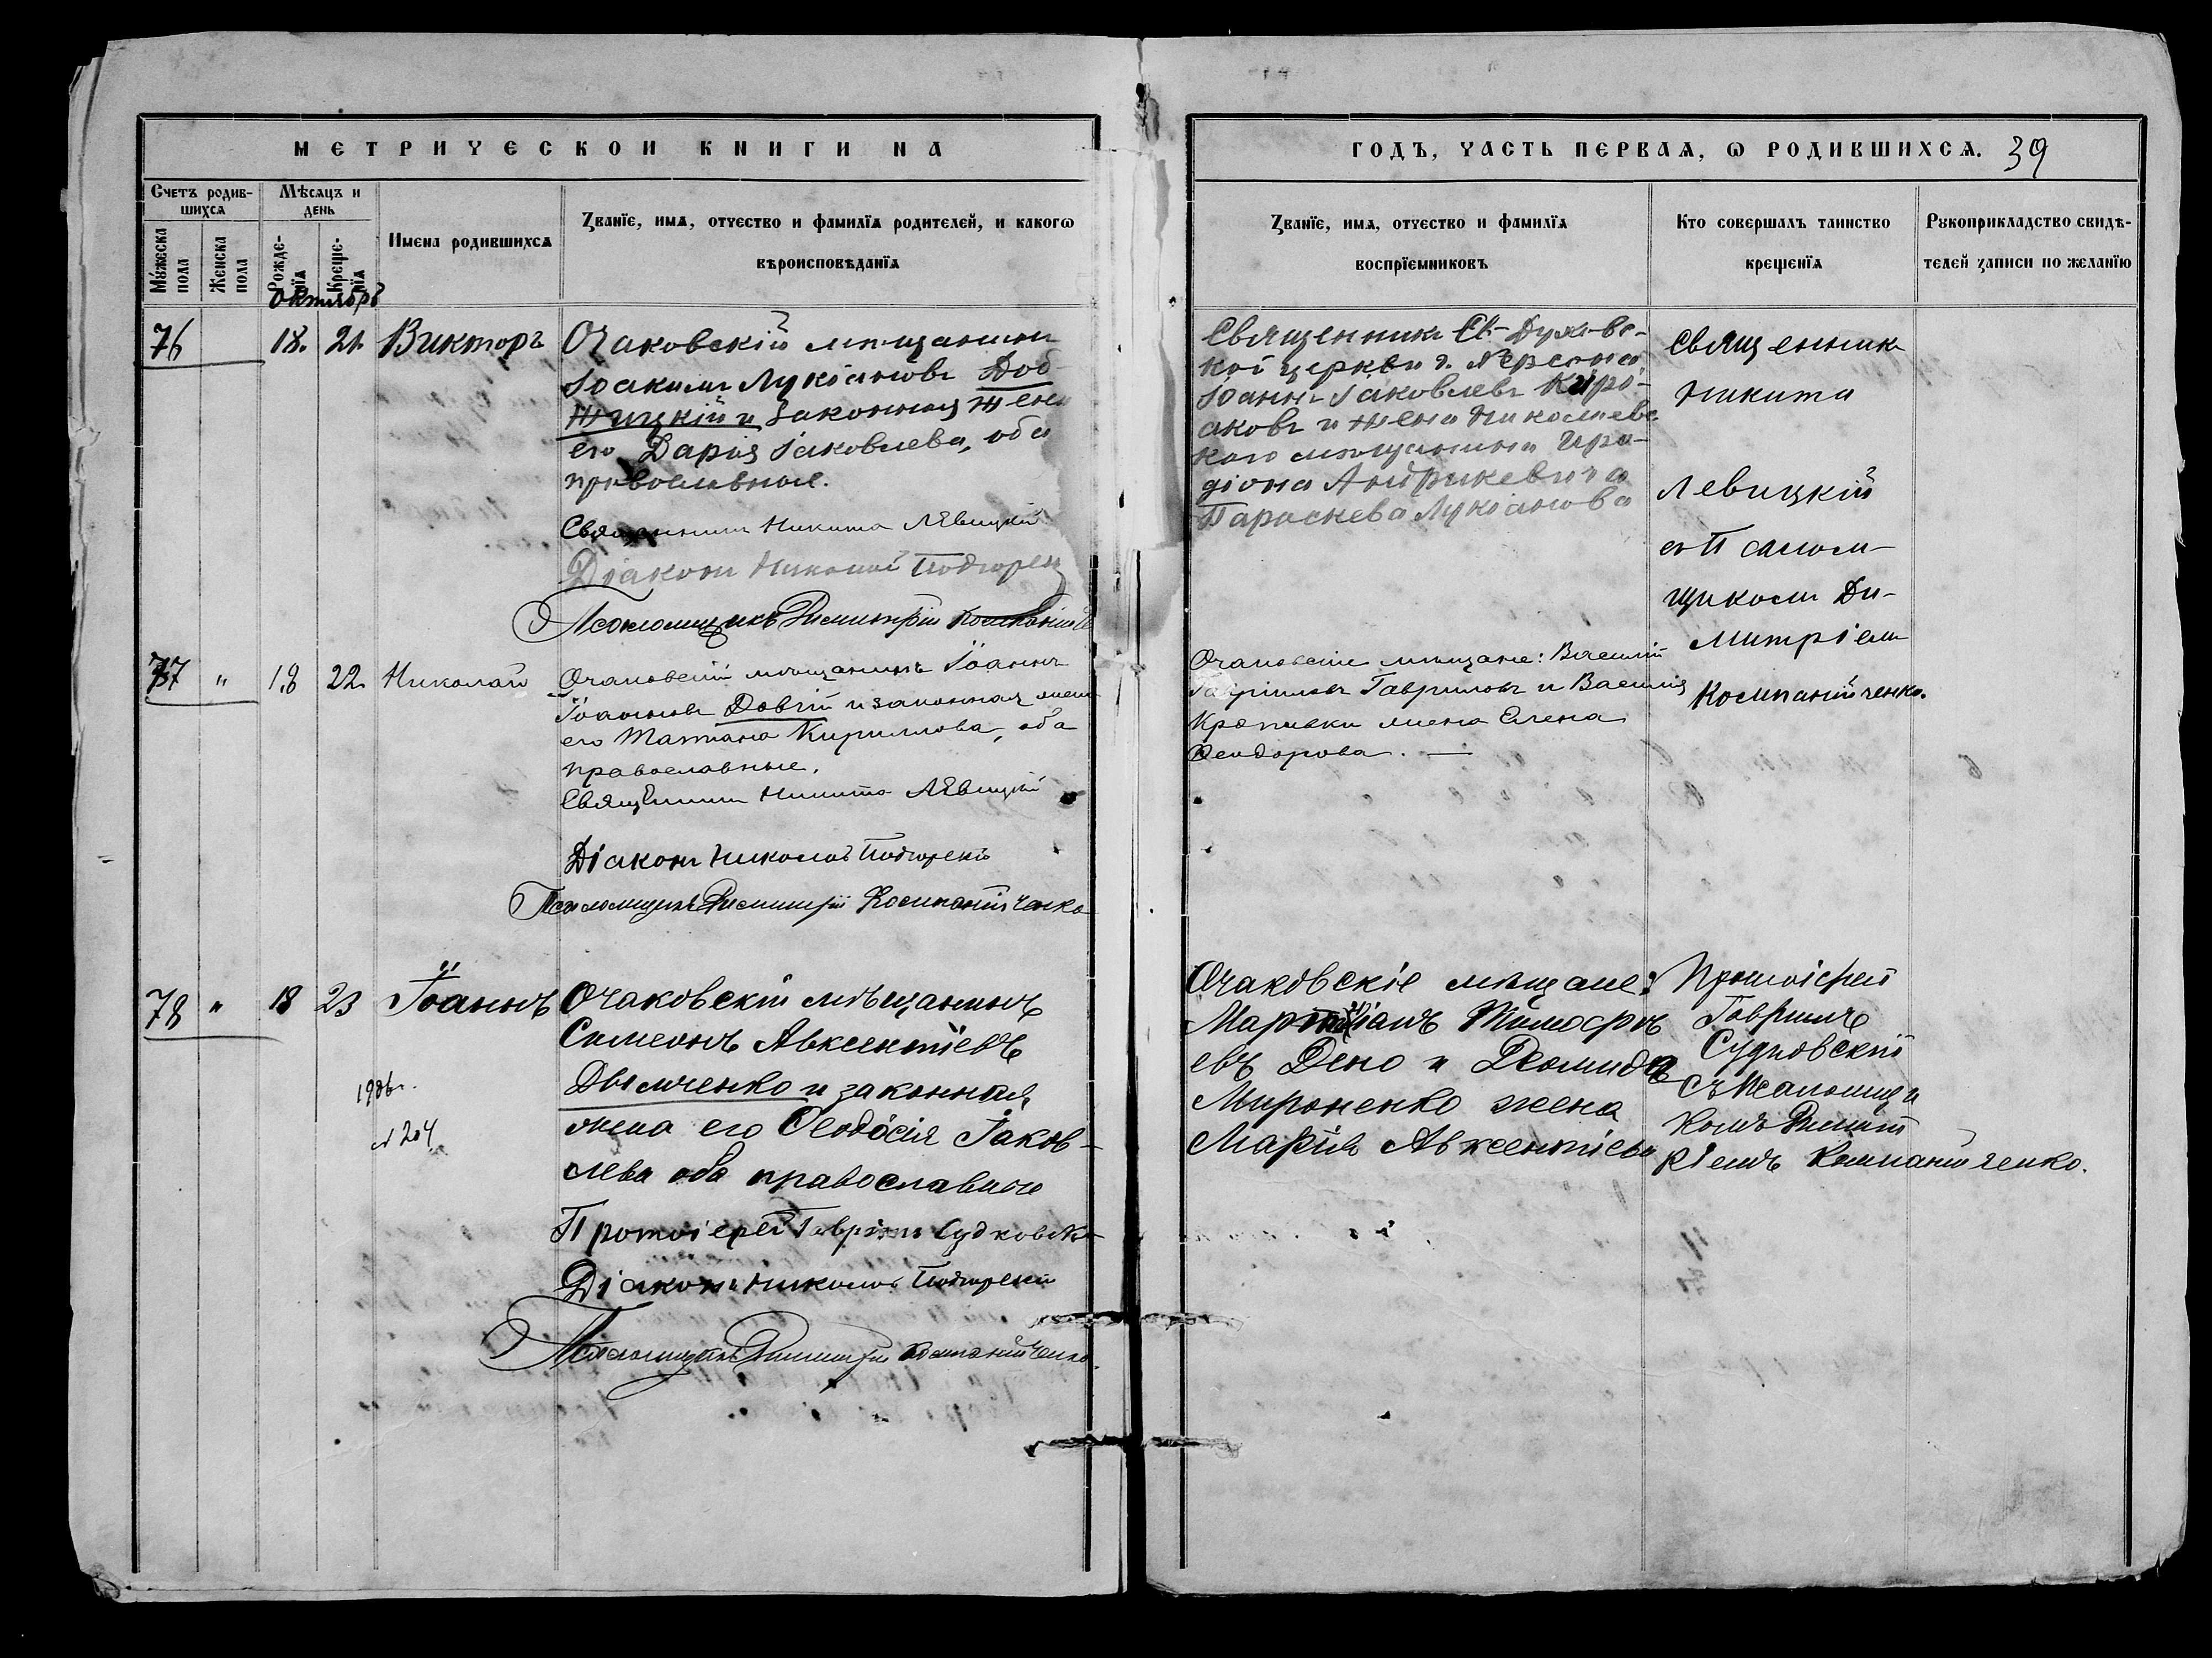 МЕТРИЧЕСКОЙ КНИГИ НА
ГОДЪ, ЧАСТЬ ПЕРВАЯ, Ѡ РОДИВШИХСЯ. 39
Счетъ родив-
шихся
Мѣсяцъ и
день
Мꙋжеска
пола
Женска
пола
Рожде-
нїя
Креще-
нїя
Имена родившихся
Званїе, имя, отчество и фамилїя родителей, и какогѡ
вѣроисповѣданїя
Званїе, имя, отчество и фамилїя
воспрїемниковъ
Кто совершалъ таинство
крещенїя
Рꙋкоприкладство свидѣ-
телей записи по желанїю
Октябрь
76 18. 21. Викторъ
Очаковскій мѣщанинъ
Іоакимъ Лукіановъ Доб-
жицкій и законная жена
его Дарія Іаковлева, оба
православные.
Священникъ Никита Левицкій
Діаконъ Николай Подгорск
Псаломщикъ Димитрій Компаній
Священникъ Св-Духовс-
кой церкви г. Херсона
Іоаннъ Іаковлевъ Киро-
аковъ и жена Николаевс
каго мѣщанина Иро-
діона Андрикевича
Параскева Лукіанова
Священникъ
Никита
Левицкій
съ Псалом-
щикомъ Ди-
митріемъ
Компанійченко.
77 " 18 22. Николай
Очаковскій мѣщанинъ Іоаннъ
Іоанновъ Довгій и законная жена
его Татіана Кириллова, оба
православные.
Священникъ Никита Левицкій
Діаконъ Николай Подгорскій
Псаломщикъ Димитрій Компанійченко
Очаковскіе мѣщане: Василій
Гавриловъ и Василія
Кропивки жена Елена
Феодорова.
78 " 18 23 Іоаннъ
Очаковскій мѣщанинъ
Симеонъ Авксентіевъ
Дымченко и законная
жена его Феодосія Іаков-
лева оба православные
Протоіерей Гавріилъ Судковск
Діаконъ Николай Подгорскій
Псаломщикъ Димитрій Компанійченко.
1906 г.
№ 204
Очаковскіе мѣщане:
Тимофе
евъ Дено и Деомида
Мироненко жена
Марія Авксентіева
Протоіерей
Гавріилъ
Судковскій
съ Псаломщи
комъ Димит
ріемъ Компанійченко.